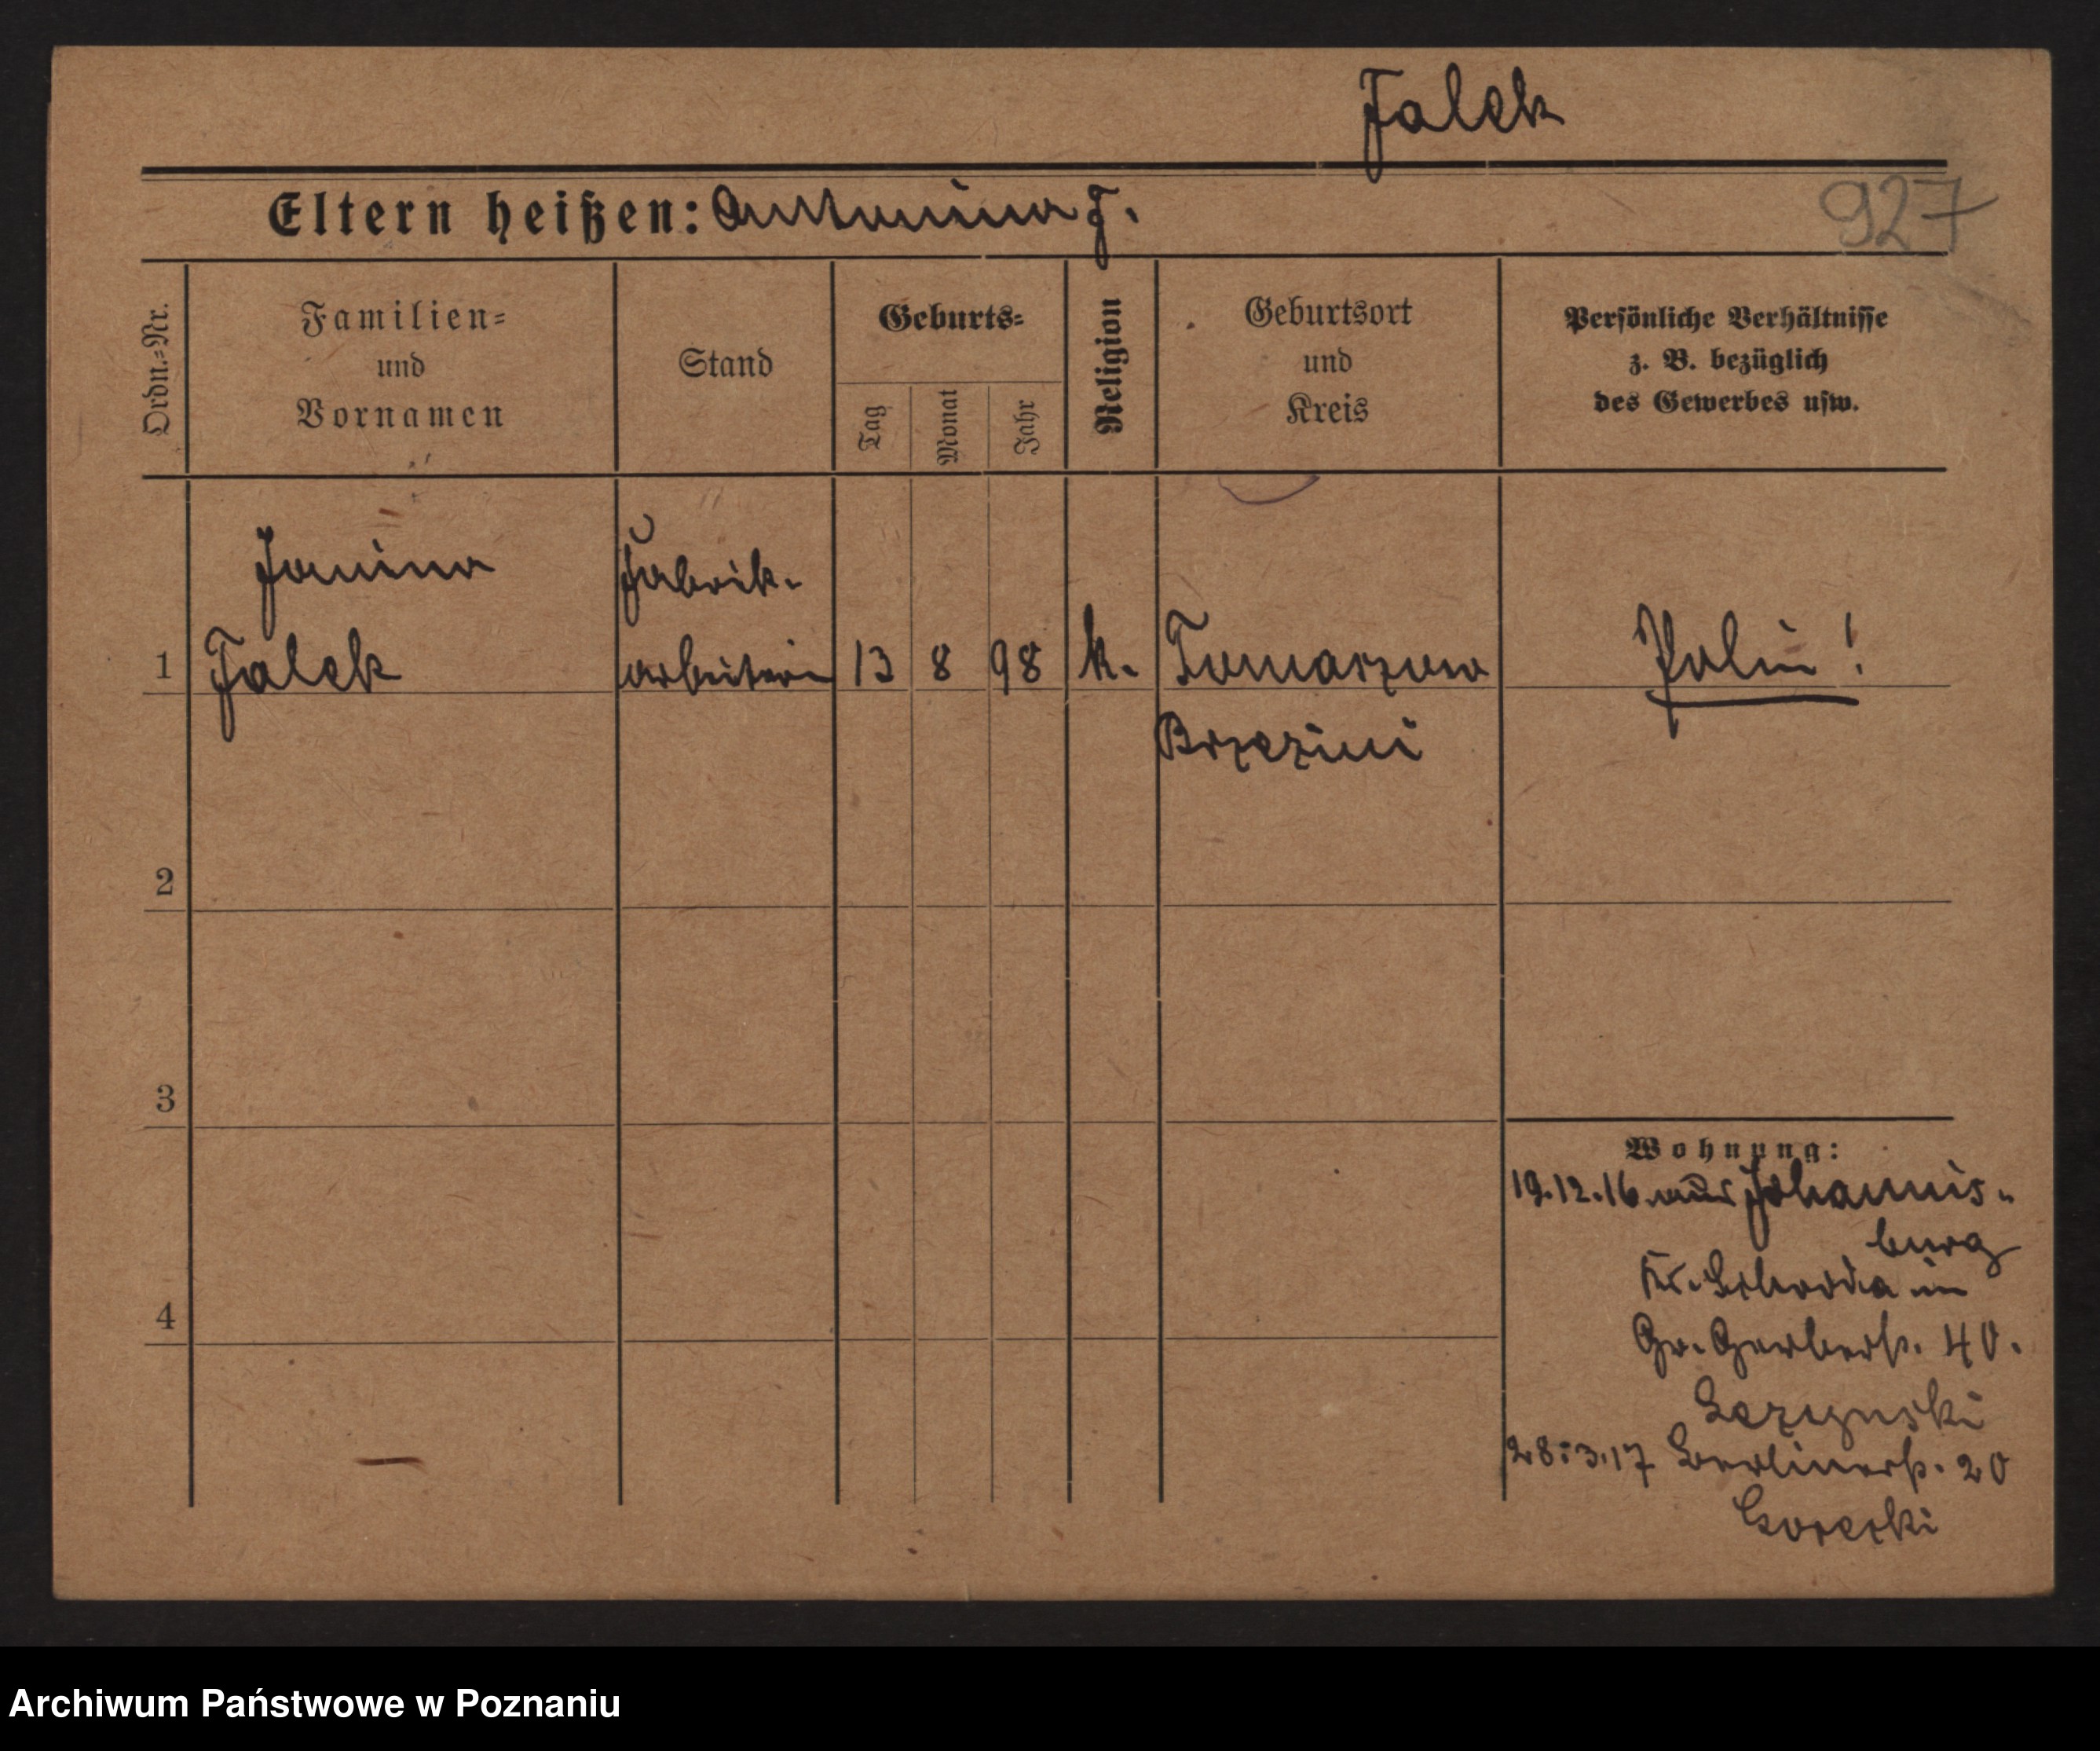 Falek
927
Eltern heißen: Antonina F.
Ordn.-Nr.
Familien-
und
Vornamen
Stand
Geburts-
Tag
Monat
Jahr
Religion
Geburtsort
und
Kreis
Persönliche Verhältnisse
z. B. bezüglich
des Gewerbes usw.
Janina
Fabrik-
1 Falek arbeiterin 13 8 98 k. Tomaszow Polin!
Brzezini
2
3
4
Wohnung:
19.12.16 aus Johannis-
burg
Kr. Schroda in
Gr. Gerberstr. 40.
28.3.17 Berlinerstr. 20
Gorecki
Archiwum Państwowe w Poznaniu